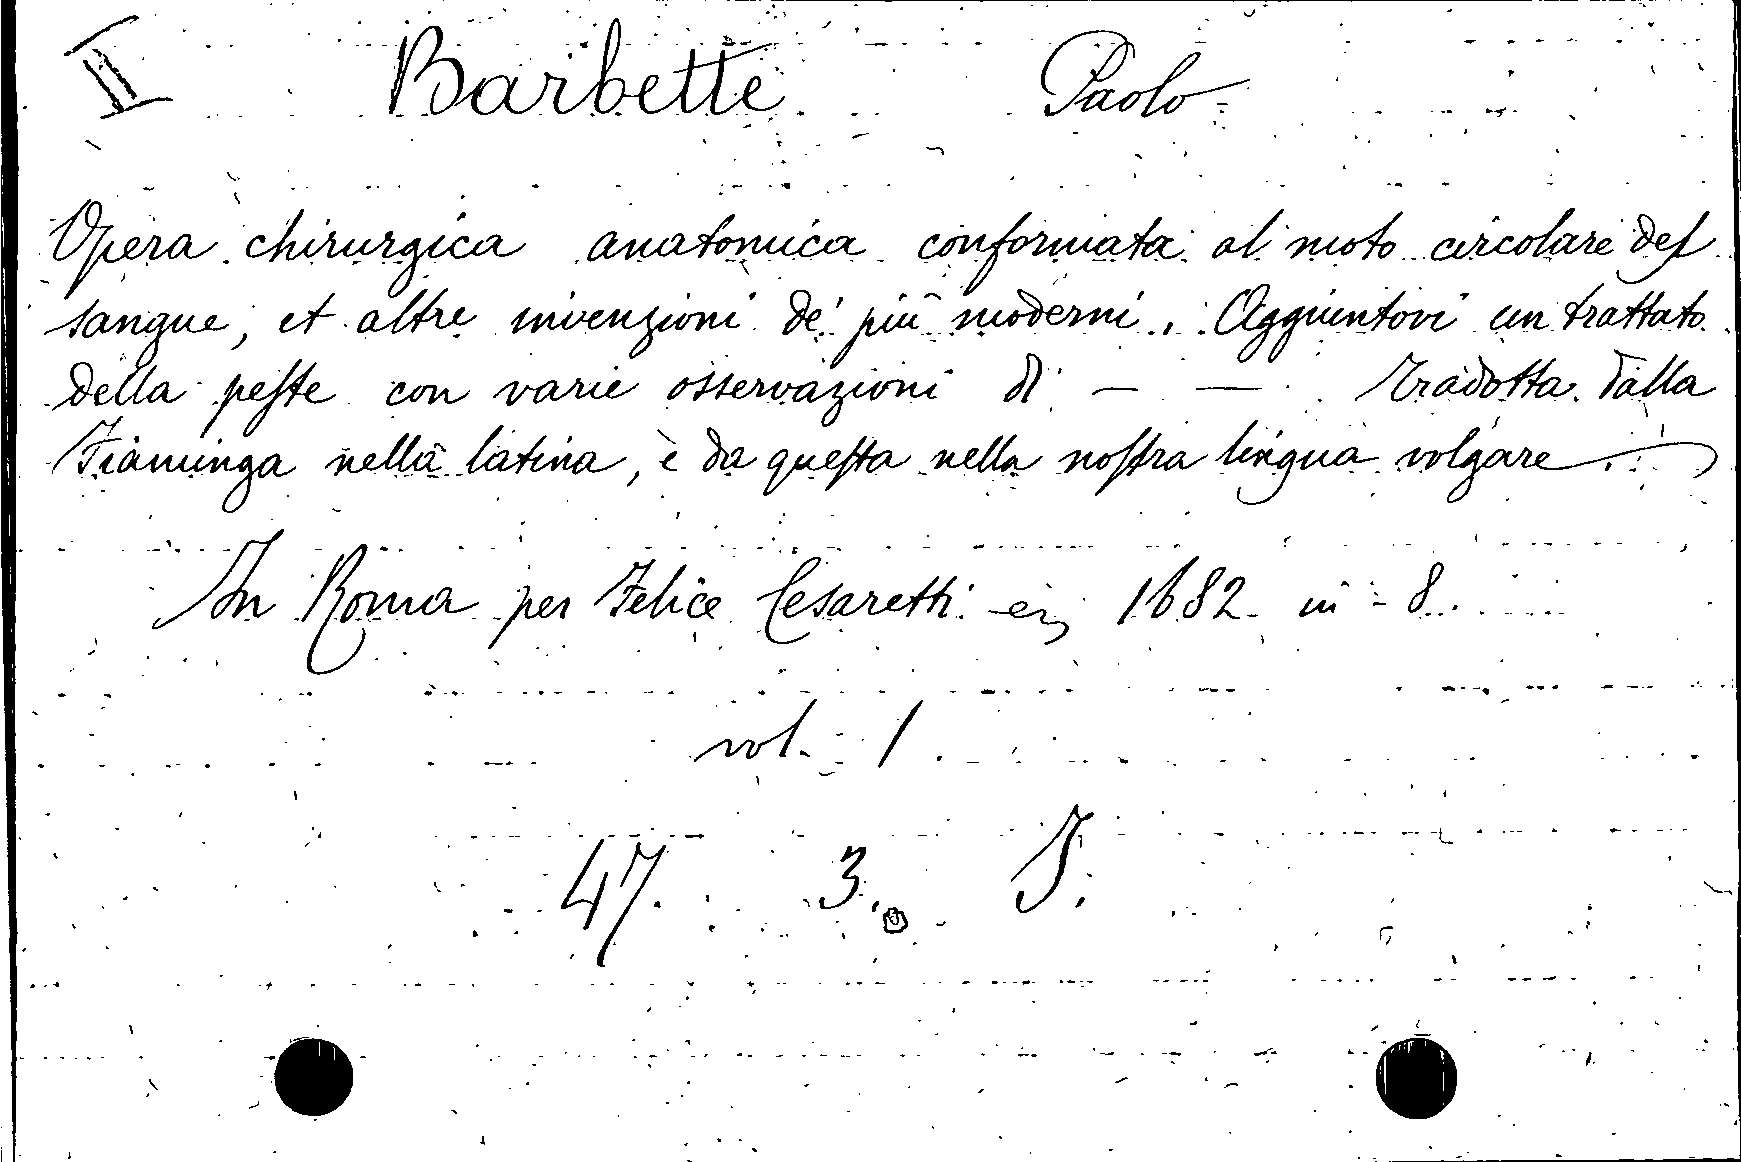 II Barbette Paolo
Opera chirurgica anatomica conformata al moto circolare del
sangue, et altre invenzioni de' più moderni. Aggiuntovi un trattato
della peste con varie osservazioni di — — Tradotta dalla
Fiaminga nella latina, è da questa nella nostra lingua volgare
In Roma per Felice Cesaretti 1682 in - 8.
vol. 1.
47. 3.